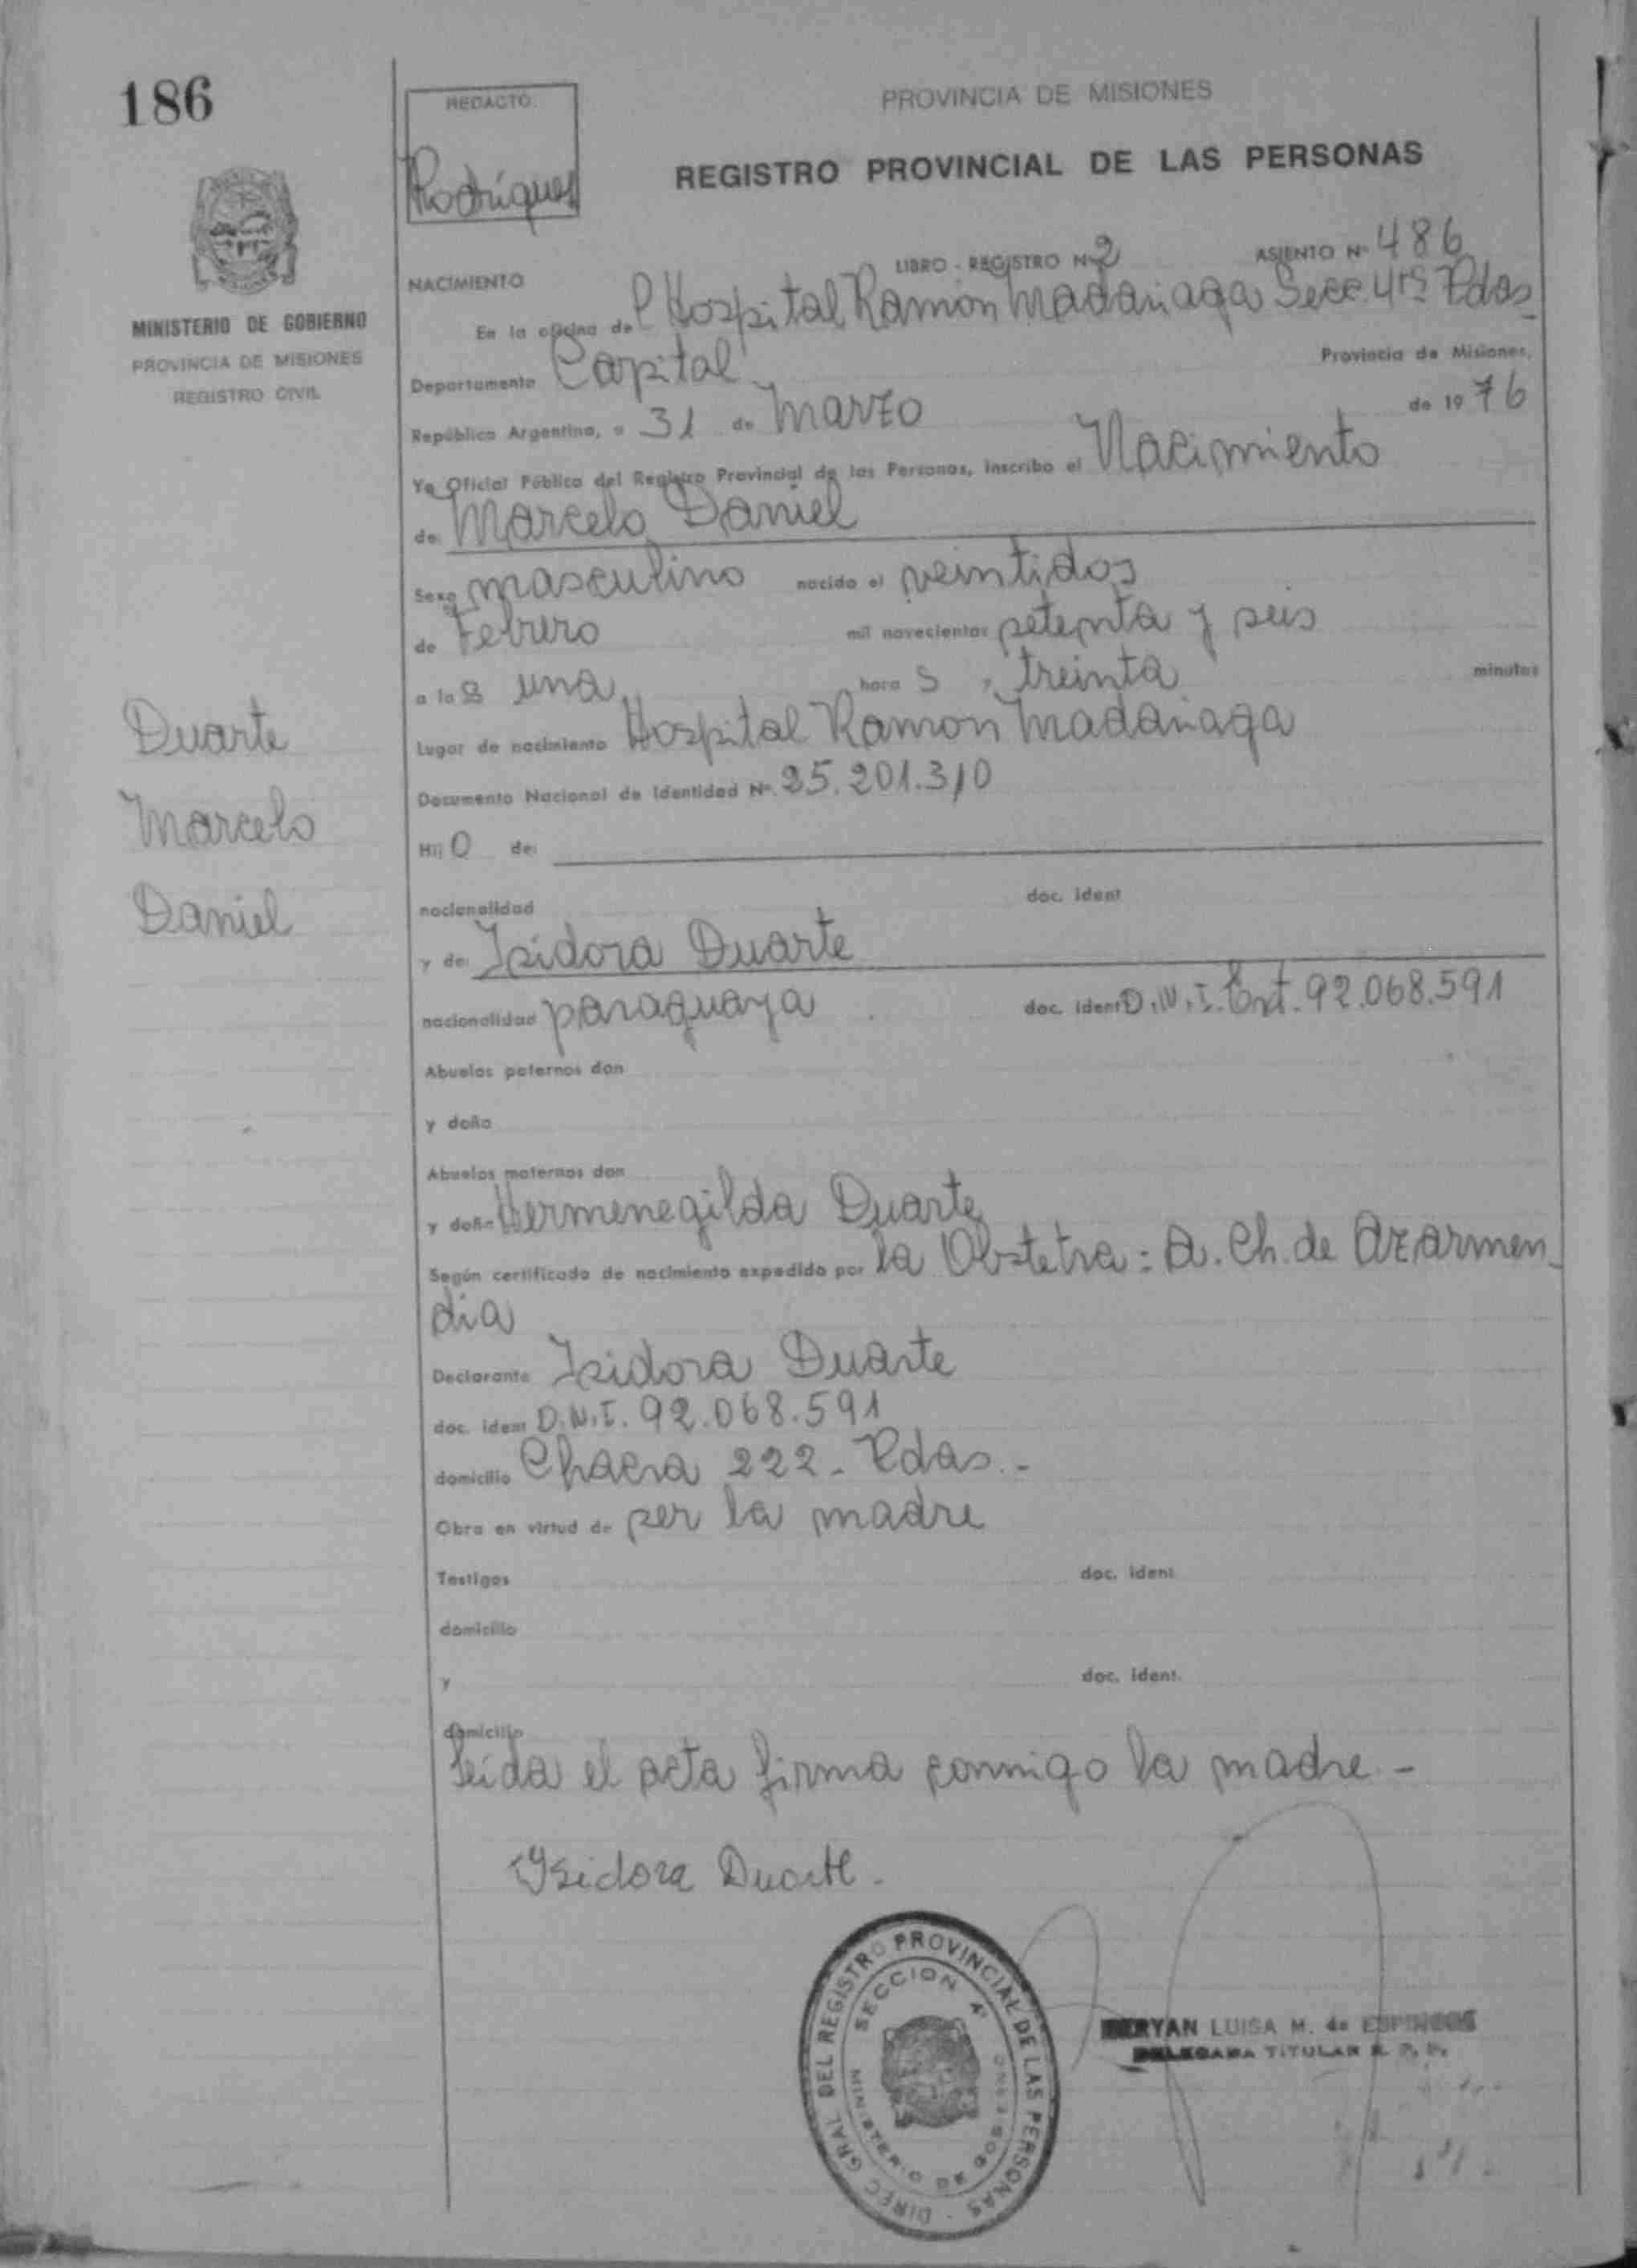 186
REDACTO
Rodríguez
PROVINCIA DE MISIONES
REGISTRO PROVINCIAL DE LAS PERSONAS
MINISTERIO DE GOBIERNO
PROVINCIA DE MISIONES
REGISTRO CIVIL
LIBRO - REGISTRO Nº 2 ASIENTO Nº 486
NACIMIENTO
En la oficina del Hospital Ramón Madariaga Secc. 4ta Pdas
Departamento Capital Provincia de Misiones,
República Argentina, a 31 de Marzo de 1976
Yo Oficial Público del Registro Provincial de las Personas, inscribo el Nacimiento
de: Marcelo Daniel
Sexo masculino nacido el veintidos
de Febrero mil novecientos setenta y seis
a las una horas, treinta minutos
Lugar de nacimiento Hospital Ramon Madariaga
Documento Nacional de Identidad Nº. 25.201.310
Hijo de:
nacionalidad doc. ident
y de: Isidora Duarte
nacionalidad paraguaya doc. ident D.N.I. Ext. 92.068.591
Abuelos paternos don
y doña
Abuelos maternos don
y doña Hermenegilda Duarte
Según certificado de nacimiento expedido por la Obstetra: A. Ch. de Azarmen_
dia
Declarante Isidora Duarte
doc. ident D.N.I. 92.068.591
domicilio Chacra 222 - Pdas. -
Obra en virtud de ser la madre
Testigos doc. ident
domicilio
y doc. ident.
domicilio
Leida el acta firma conmigo la madre -
Ysidora Duarte.
Duarte
Marcelo
Daniel
DIREC GRAL DEL REGISTRO PROVINCIAL DE LAS PERSONAS
SECCION 4º
MINISTERIO DE GOBIERNO
LUISA M. de
DELEGADA TITULAR R. P. P.